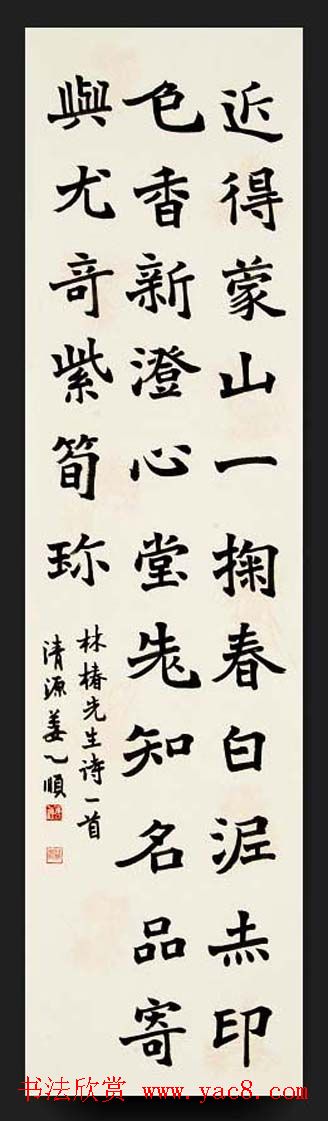 近得蒙山一掬春白泥赤印
色香新澄心堂老知名品寄
與尤奇紫筍珎
林椿先生诗一首
清源姜乙順
书法欣赏 www.yac8.com